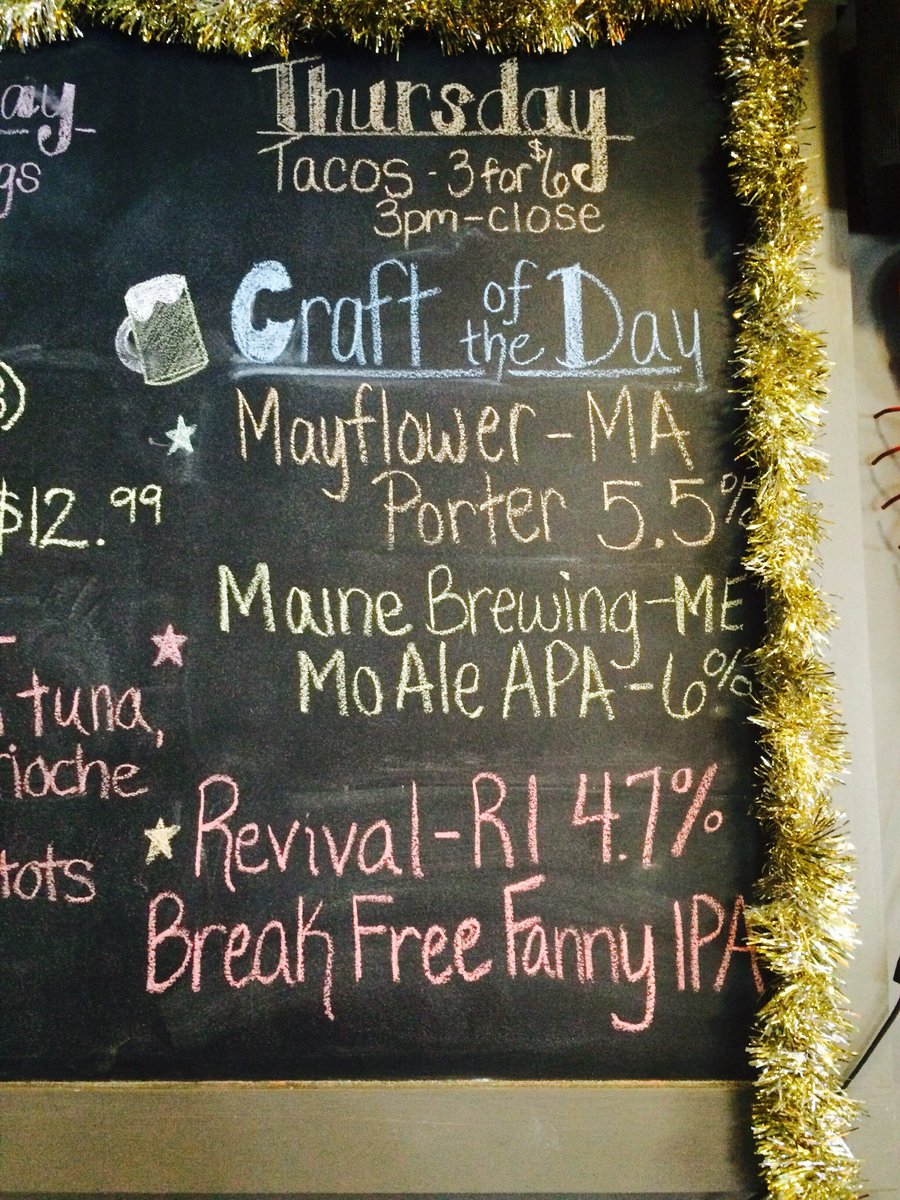 Thursday
Tacos - 3 for $6
3pm-close
Craft of the Day
Mayflower - MA
Porter 5.5%
$12.99
Maine Brewing - ME
Mo Ale APA - 6%
tuna,
Revival - RI 4.7%
tots
Break Free Fanny IPA